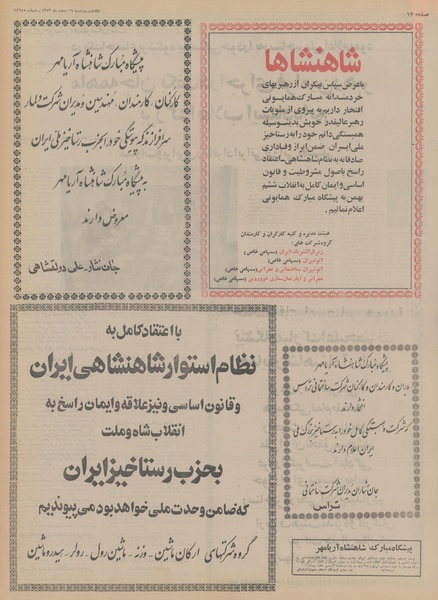 صفحه ۱۳
شاهنشاها
با عرض سپاس بیکران از رهبریهای
خردمندانه مبارک همایونی
افتخار داریم به پیروی از منویات
رهبر عالیقدر خویش بدینوسیله
همبستگی دائم خود را به رستاخیز
ملی ایران ضمن ابراز وفاداری
صادقانه به نظام شاهنشاهی_اعتقاد
راسخ باصول مشروطیت و قانون
اساسی و ایمان کامل به انقلاب ششم
بهمن به پیشگاه مبارک همایونی
اعلام نمائیم.
هیئت مدیره و کلیه کارگران و کارمندان
گروه شرکت های:
ژنرال الکتریک ایران (سهامی خاص)
(سهامی خاص)
ساختمانی و عمرانی (سهامی خاص)
(سهامی خاص)
پیشگاه مبارک شاهنشاه آریامهر
کارکنان، کارمندان، مهندسین و مدیران شرکت
سرافرازند که پیوستگی خود را بحزب رستاخیز ملی ایران
به پیشگاه مبارک شاهنشاه آریامهر
معروض دارند
جان نثار_علی دولتشاهی
با اعتقاد کامل به
نظام استوار شاهنشاهی ایران
و قانون اساسی و نیز علاقه و ایمان راسخ به
انقلاب شاه و ملت
بحزب رستاخیز ایران
که ضامن وحدت ملی خواهد بود می پیوندیم
گروه شرکتهای ارکان ماشین - وزنه - ماشین رول - رولر - هیدرو ماشین
پیشگاه مبارک شاهنشاه آریامهر
مدیران و کارمندان و کارکنان شرکت ساختمانی تراس
افتخار دارند
که شرکت و همبستگی کامل خود را به رستاخیز بزرگ ملی
ایران اعلام دارند
جان نثاران مدیران شرکت ساختمانی
تراس
پیشگاه مبارک شاهنشاه آریامهر